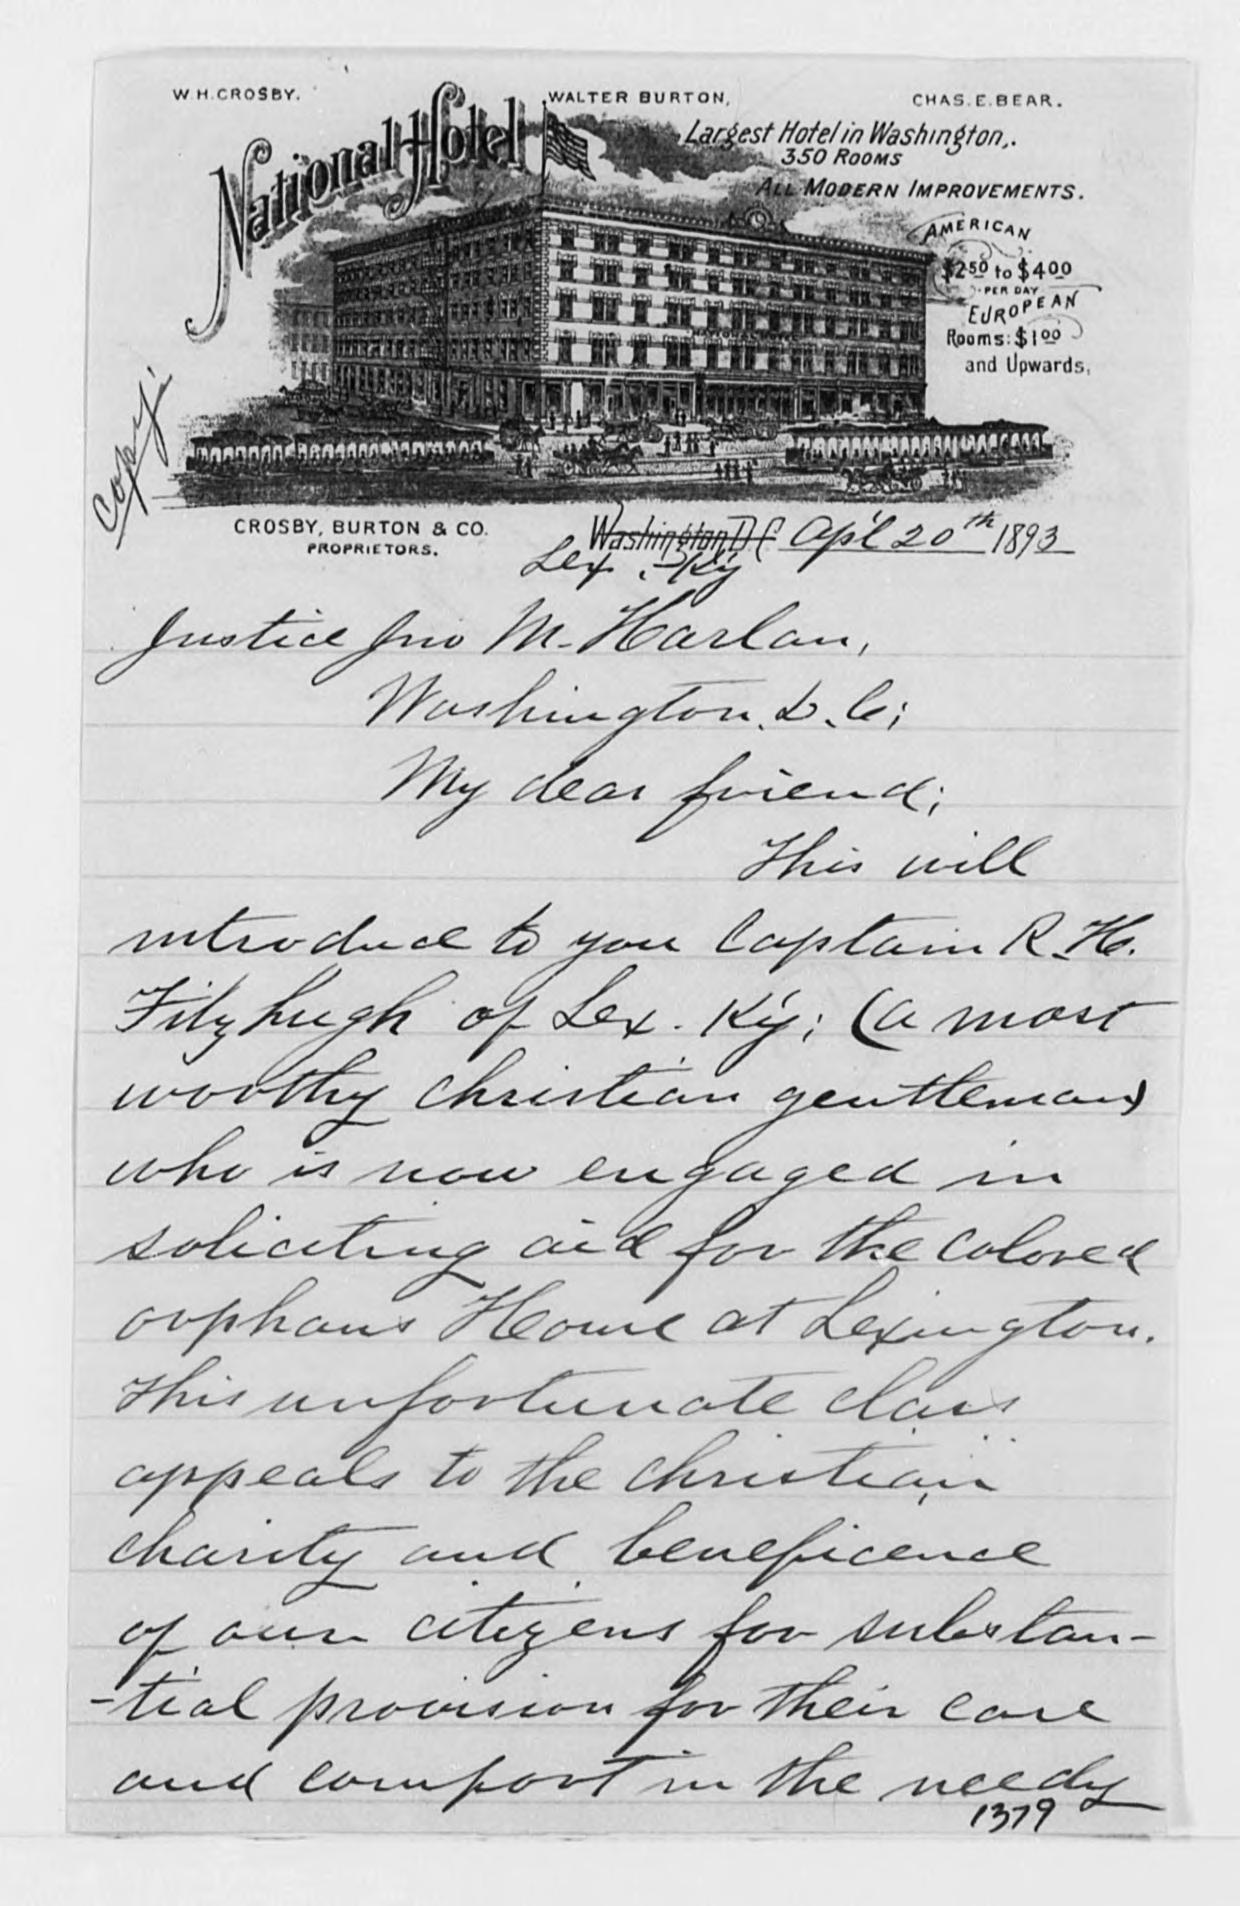 W.H.CROSBY. WALTER BURTON, CHAS.E.BEAR.
National Hotel
Largest Hotel in Washington,.
350 ROOMS
ALL MODERN IMPROVEMENTS.
AMERICAN
$2.50 to $4.00
PER DAY
EUROPEAN
Rooms: $1.00
and Upwards,
NATIONAL HOTEL
Copy.
CROSBY, BURTON & CO.
PROPRIETORS.
Washington, D.C. Ap'l 20th 1893
Lex. Ky
Justice Jno M. Harlan,
Washington, D.C;
My dear friend;
This will
introduce to you Captain R.H.
Fitzhugh of Lex. Ky; (a most
worthy christian gentleman)
who is now engaged in
soliciting aid for the colored
orphans Home at Lexington.
This unfortunate class
appeals to the christian
charity and beneficence
of our citizens for substan-
-tial provision for their care
and comfort in the needy
1379